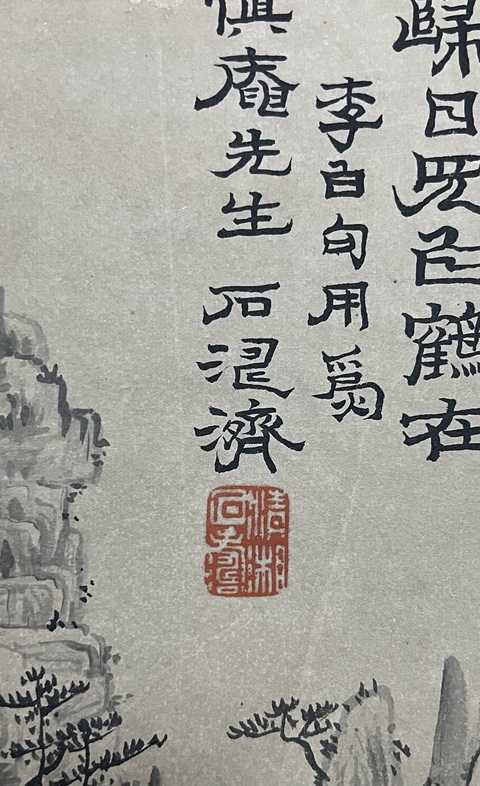 歸日既鶴在
李白句用爲
慎庵先生 石濟
清湘
石濤